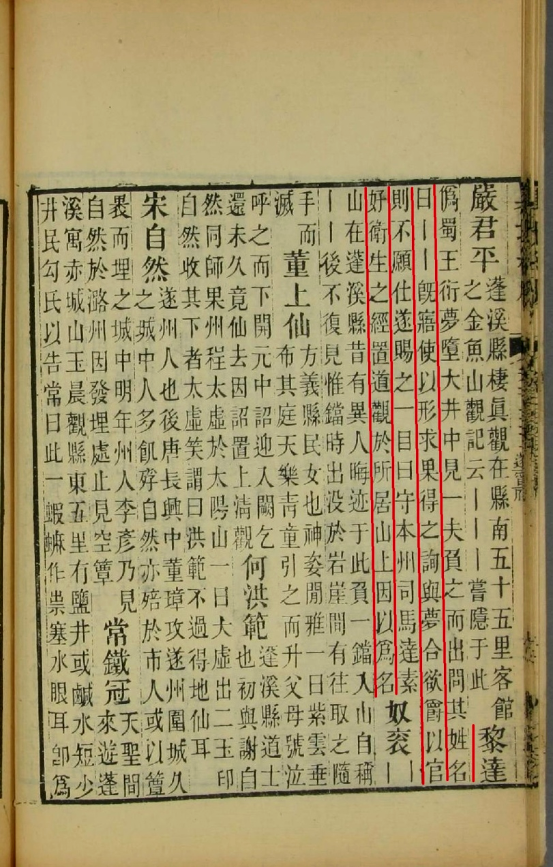 嚴君平
蓬溪縣棲眞觀在縣南五十五里客館
之金魚山觀記云｜｜｜嘗隱于此
黎達
爲蜀王衍夢墮大井中見一夫負之而出問其姓名
曰｜｜旣寤使以形求果得之詢與夢合欲爵以官
則不願仕遂賜之一目曰守本州司馬達素
好衛生之經置道觀於所居山上因以爲名
奴衮｜
山在蓬溪縣昔有異人晦迹于此負一鐺入山自稱
｜｜後不復見惟鐺時出没於岩崖間有往取之隨
手而
滅
董上仙
方義縣民女也神姿閒雅一日紫雲垂
布其庭天樂青童引之而升父母號泣
呼之而下開元中詔迎入闕乞
還未久竟仙去因詔置上清觀
何洪範
蓬溪縣道士
也初與謝自
然同師果州程太虛於大陽山一日大虛出二玉印
自然收其下者太虛笑謂曰洪範不過得地仙耳
宋自然
遂州人也後唐長興中董璋攻遂州圍城久
之城中人多飢殍自然亦殕於市人或以簟
裹而埋之城中明年州人李彥乃見
自然於潞州因發埋處止見空簟
常鐵冠
天聖間
來遊蓬
溪寓赤城山玉晨觀縣東五里有鹽井或鹹水短少
井民勾氏以告常曰此一蝦蟆作祟塞水眼耳卽爲